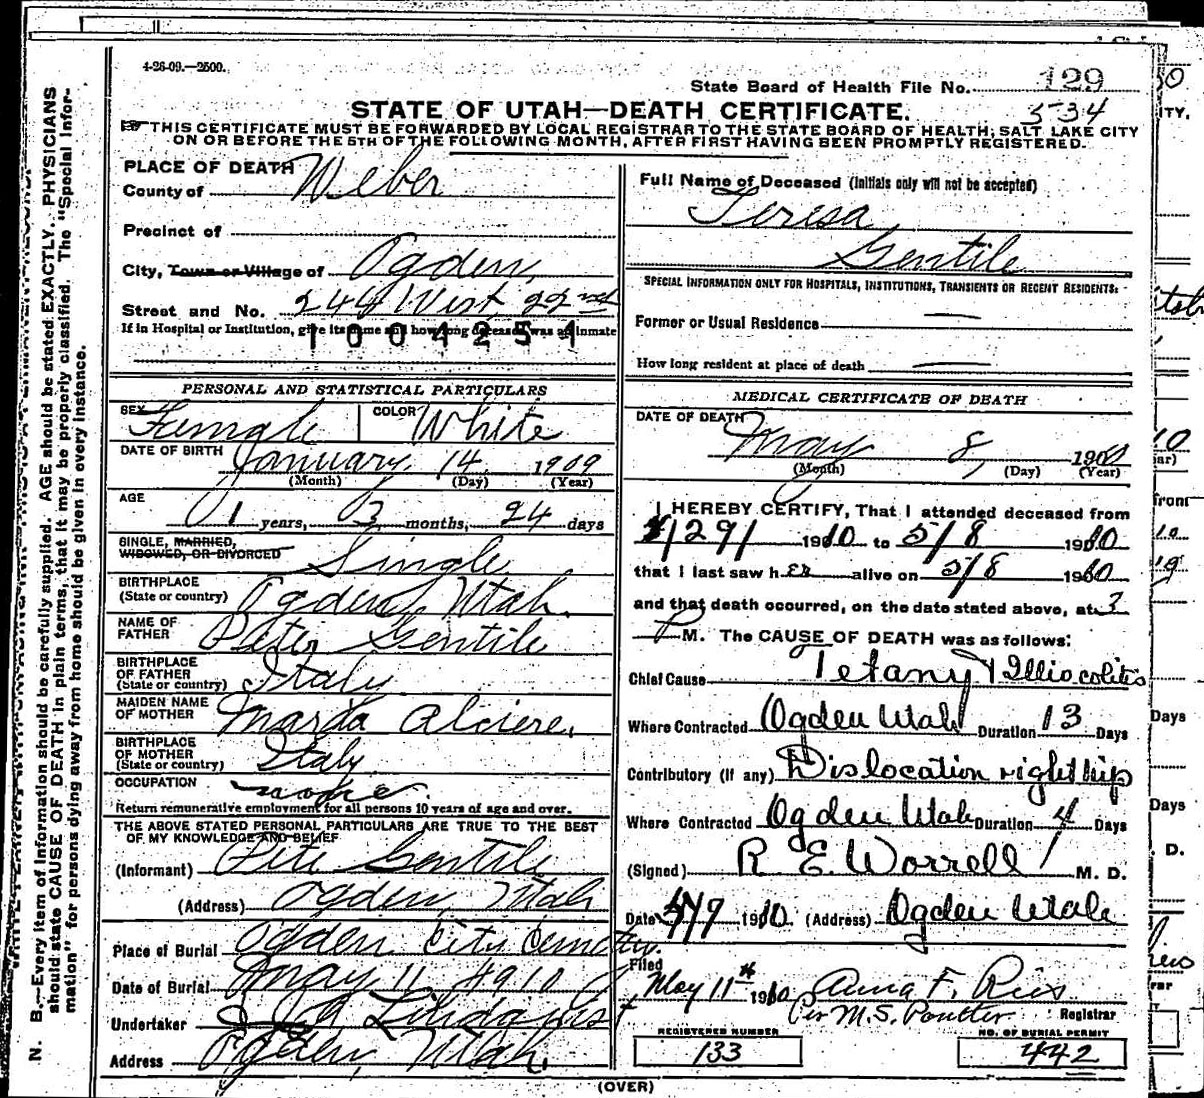 4-26-09.—2500.
State Board of Health File No. 129
534
STATE OF UTAH—DEATH CERTIFICATE.
THIS CERTIFICATE MUST BE FORWARDED BY LOCAL REGISTRAR TO THE STATE BOARD OF HEALTH, SALT LAKE CITY
ON OR BEFORE THE 5TH OF THE FOLLOWING MONTH, AFTER FIRST HAVING BEEN PROMPTLY REGISTERED.
PLACE OF DEATH
County of Weber
Precinct of
City, Town or Village of Ogden,
Street and No. 244 West 22nd
If in Hospital or Institution, give its name and how long deceased was an inmate
1004251
PERSONAL AND STATISTICAL PARTICULARS
SEX Female COLOR White
DATE OF BIRTH January 14 1909
(Month) (Day) (Year)
AGE 1 years, 3 months, 24 days
SINGLE, MARRIED,
WIDOWED, OR DIVORCED Single
BIRTHPLACE
(State or country) Ogden, Utah.
NAME OF
FATHER Peter Gentile
BIRTHPLACE
OF FATHER
(State or country) Italy
MAIDEN NAME
OF MOTHER Marda Alciere.
BIRTHPLACE
OF MOTHER
(State or country) Italy
OCCUPATION none.
Return remunerative employment for all persons 10 years of age and over.
THE ABOVE STATED PERSONAL PARTICULARS ARE TRUE TO THE BEST
OF MY KNOWLEDGE AND BELIEF
(Informant) Pete Gentile
(Address) Ogden, Utah
Place of Burial Ogden City Cemetry.
Date of Burial May 11 1910
Undertaker Lindquist
Address Ogden, Utah.
Full Name of Deceased (Initials only will not be accepted)
Teresa
Gentile
SPECIAL INFORMATION ONLY FOR HOSPITALS, INSTITUTIONS, TRANSIENTS OR RECENT RESIDENTS:
Former or Usual Residence —
How long resident at place of death —
MEDICAL CERTIFICATE OF DEATH
DATE OF DEATH
May 8, 1910
(Month) (Day) (Year)
I HEREBY CERTIFY, That I attended deceased from
4/29/ 1910 to 5/8 1910
that I last saw her alive on 5/8 1910
and that death occurred, on the date stated above, at 3
P M. The CAUSE OF DEATH was as follows:
Chief Cause Tetany & Illiocolitis
Where Contracted Ogden Utah Duration 13 Days
Contributory (if any) Dislocation right hip
Where Contracted Ogden Utah Duration 4 Days
(Signed) R. E. Worrell M. D.
Date 5/9 1910 (Address) Ogden Utah
Filed
May 11th 1910 Anna F. Ries
Per M.S. Poulter Registrar
REGISTERED NUMBER NO. OF BURIAL PERMIT
133 442
(OVER)
N. B.—Every item of Information should be carefully supplied. AGE should be stated EXACTLY. PHYSICIANS
should state CAUSE OF DEATH in plain terms, that it may be properly classified. The "Special Infor-
mation" for persons dying away from home should be given in every instance.
Days
Days
D.